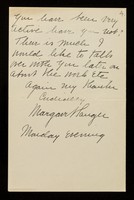 You have been very
active have you not?
There is much I
would like to talk
over with you later on
about the work etc
Again my thanks
Cordially
Margaret Sanger
Monday evening